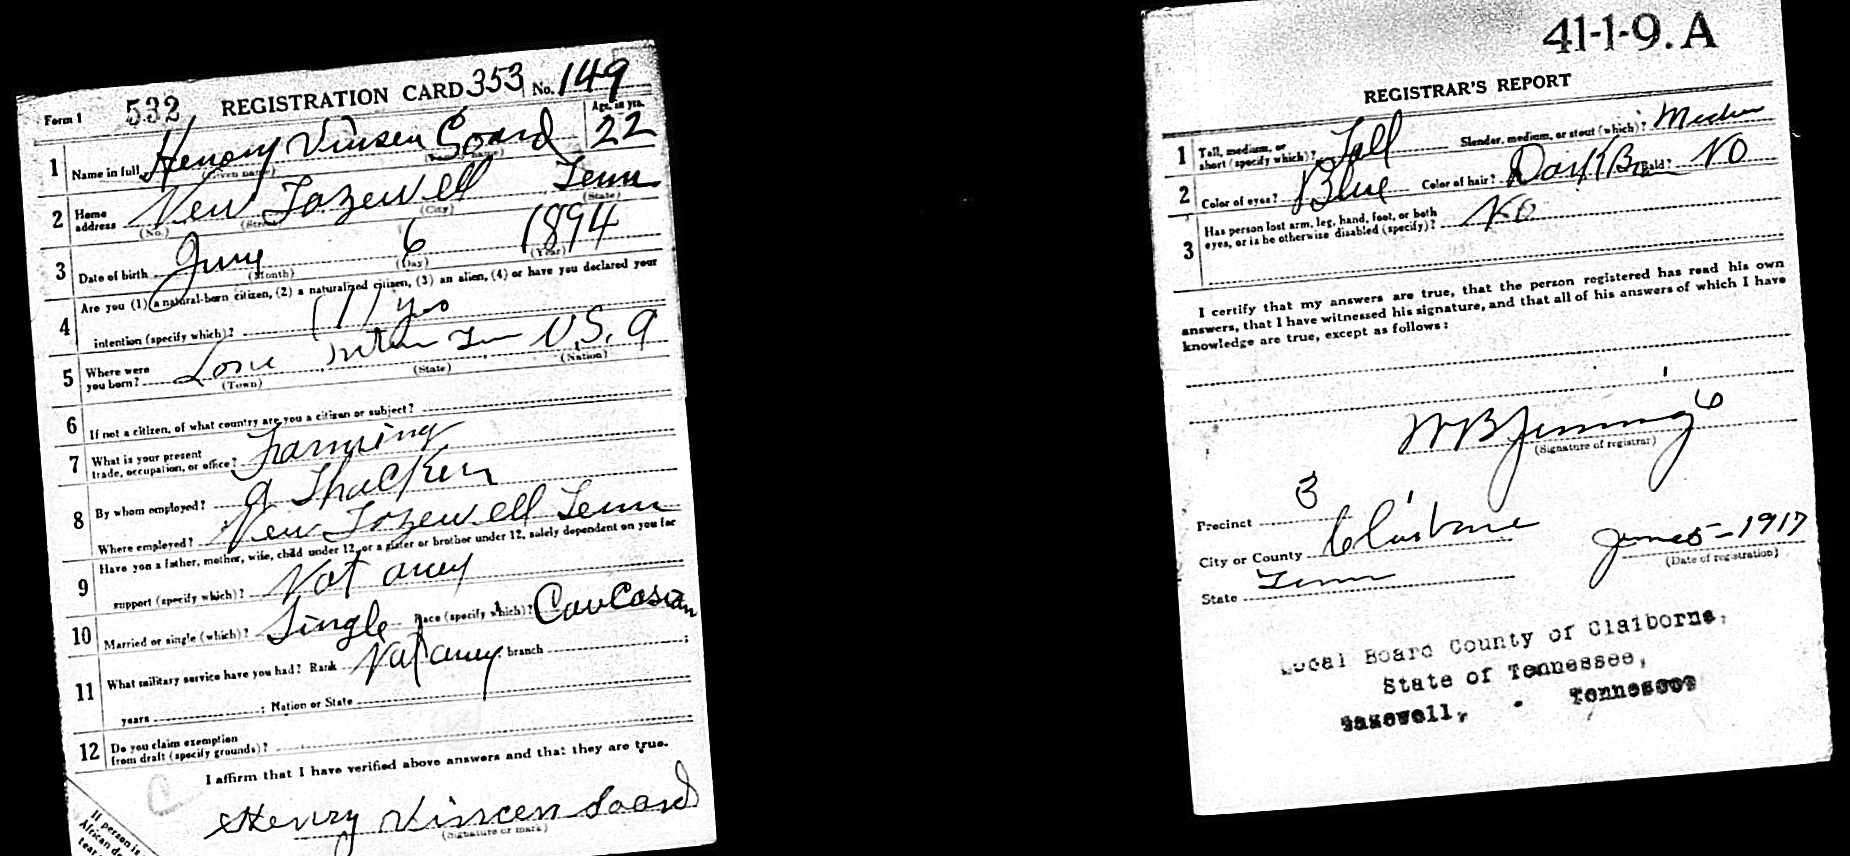 Form 1 532 REGISTRATION CARD 353 No. 149
Age, in yrs.
1 Name in full Henory Vinsen Soard 22
(Given name) (Family name)
2 Home address New Tazewell Tenn
(No.) (Street) (City) (State)
3 Date of birth June 6 1894
(Month) (Day) (Year)
4 Are you (1) a natural-born citizen, (2) a naturalized citizen, (3) an alien, (4) or have you declared your
intention (specify which)? (1) yes
5 Where were you born? Lone Tenn U.S.A
(Town) (State) (Nation)
6 If not a citizen, of what country are you a citizen or subject?
7 What is your present trade, occupation, or office? Farming
8 By whom employed? a Thacker
Where employed? New Tazewell Tenn
9 Have you a father, mother, wife, child under 12, or a sister or brother under 12, solely dependent on you for
support (specify which)? Not aney
10 Married or single (which)? Single Race (specify which)? CauCasian
11 What military service have you had? Rank Not aney branch ;
years ; Nation or State
12 Do you claim exemption
from draft (specify grounds)?
I affirm that I have verified above answers and that they are true.
Henry Vincen Soard
(Signature or mark)
If person is
African de
tear
41-1-9. A
REGISTRAR'S REPORT
1 Tall, medium, or short (specify which)? Tall Slender, medium, or stout (which)? Medium
2 Color of eyes? Blue Color of hair? Dark Br Bald? NO
3 Has person lost arm, leg, hand, foot, or both
eyes, or is he otherwise disabled (specify)? NO
I certify that my answers are true, that the person registered has read his own
answers, that I have witnessed his signature, and that all of his answers of which I have
knowledge are true, except as follows:
W B Jennings
(Signature of registrar)
Precinct 3
City or County Claiborne June 5-1917
(Date of registration)
State Tenn
Local Board County of Claiborne,
State of Tennessee,
Tazewell, - Tennessee